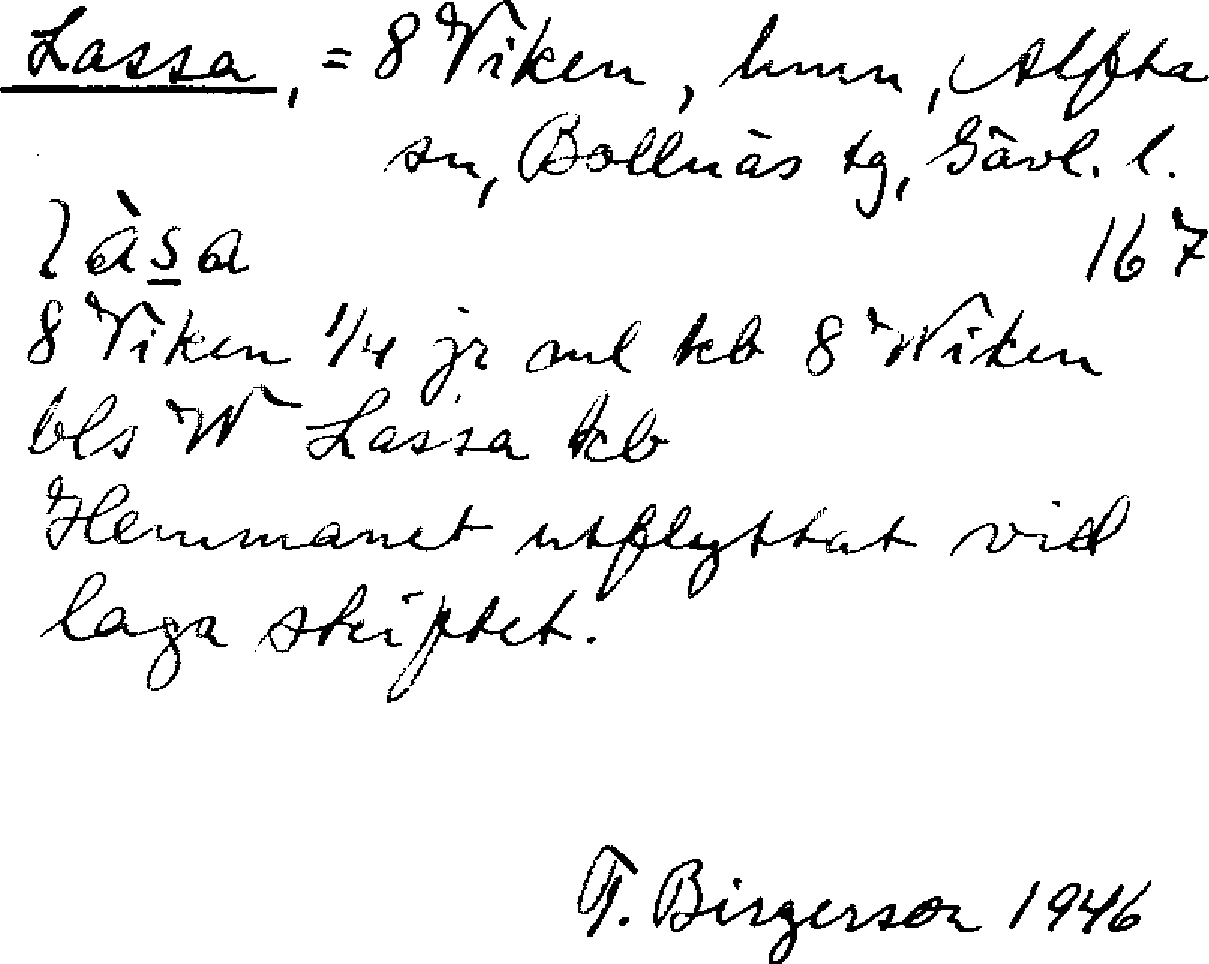 Lassa, = 8 Viken, hmn, Alfta
sn, Bollnäs tg, Gävl. l.
làsa 167
8 Viken 1/4 jr ml kb 8 Wiken
bls W Lassa kb
Hemmanet utflyttat vid
laga skiftet.
T. Birgerson 1946